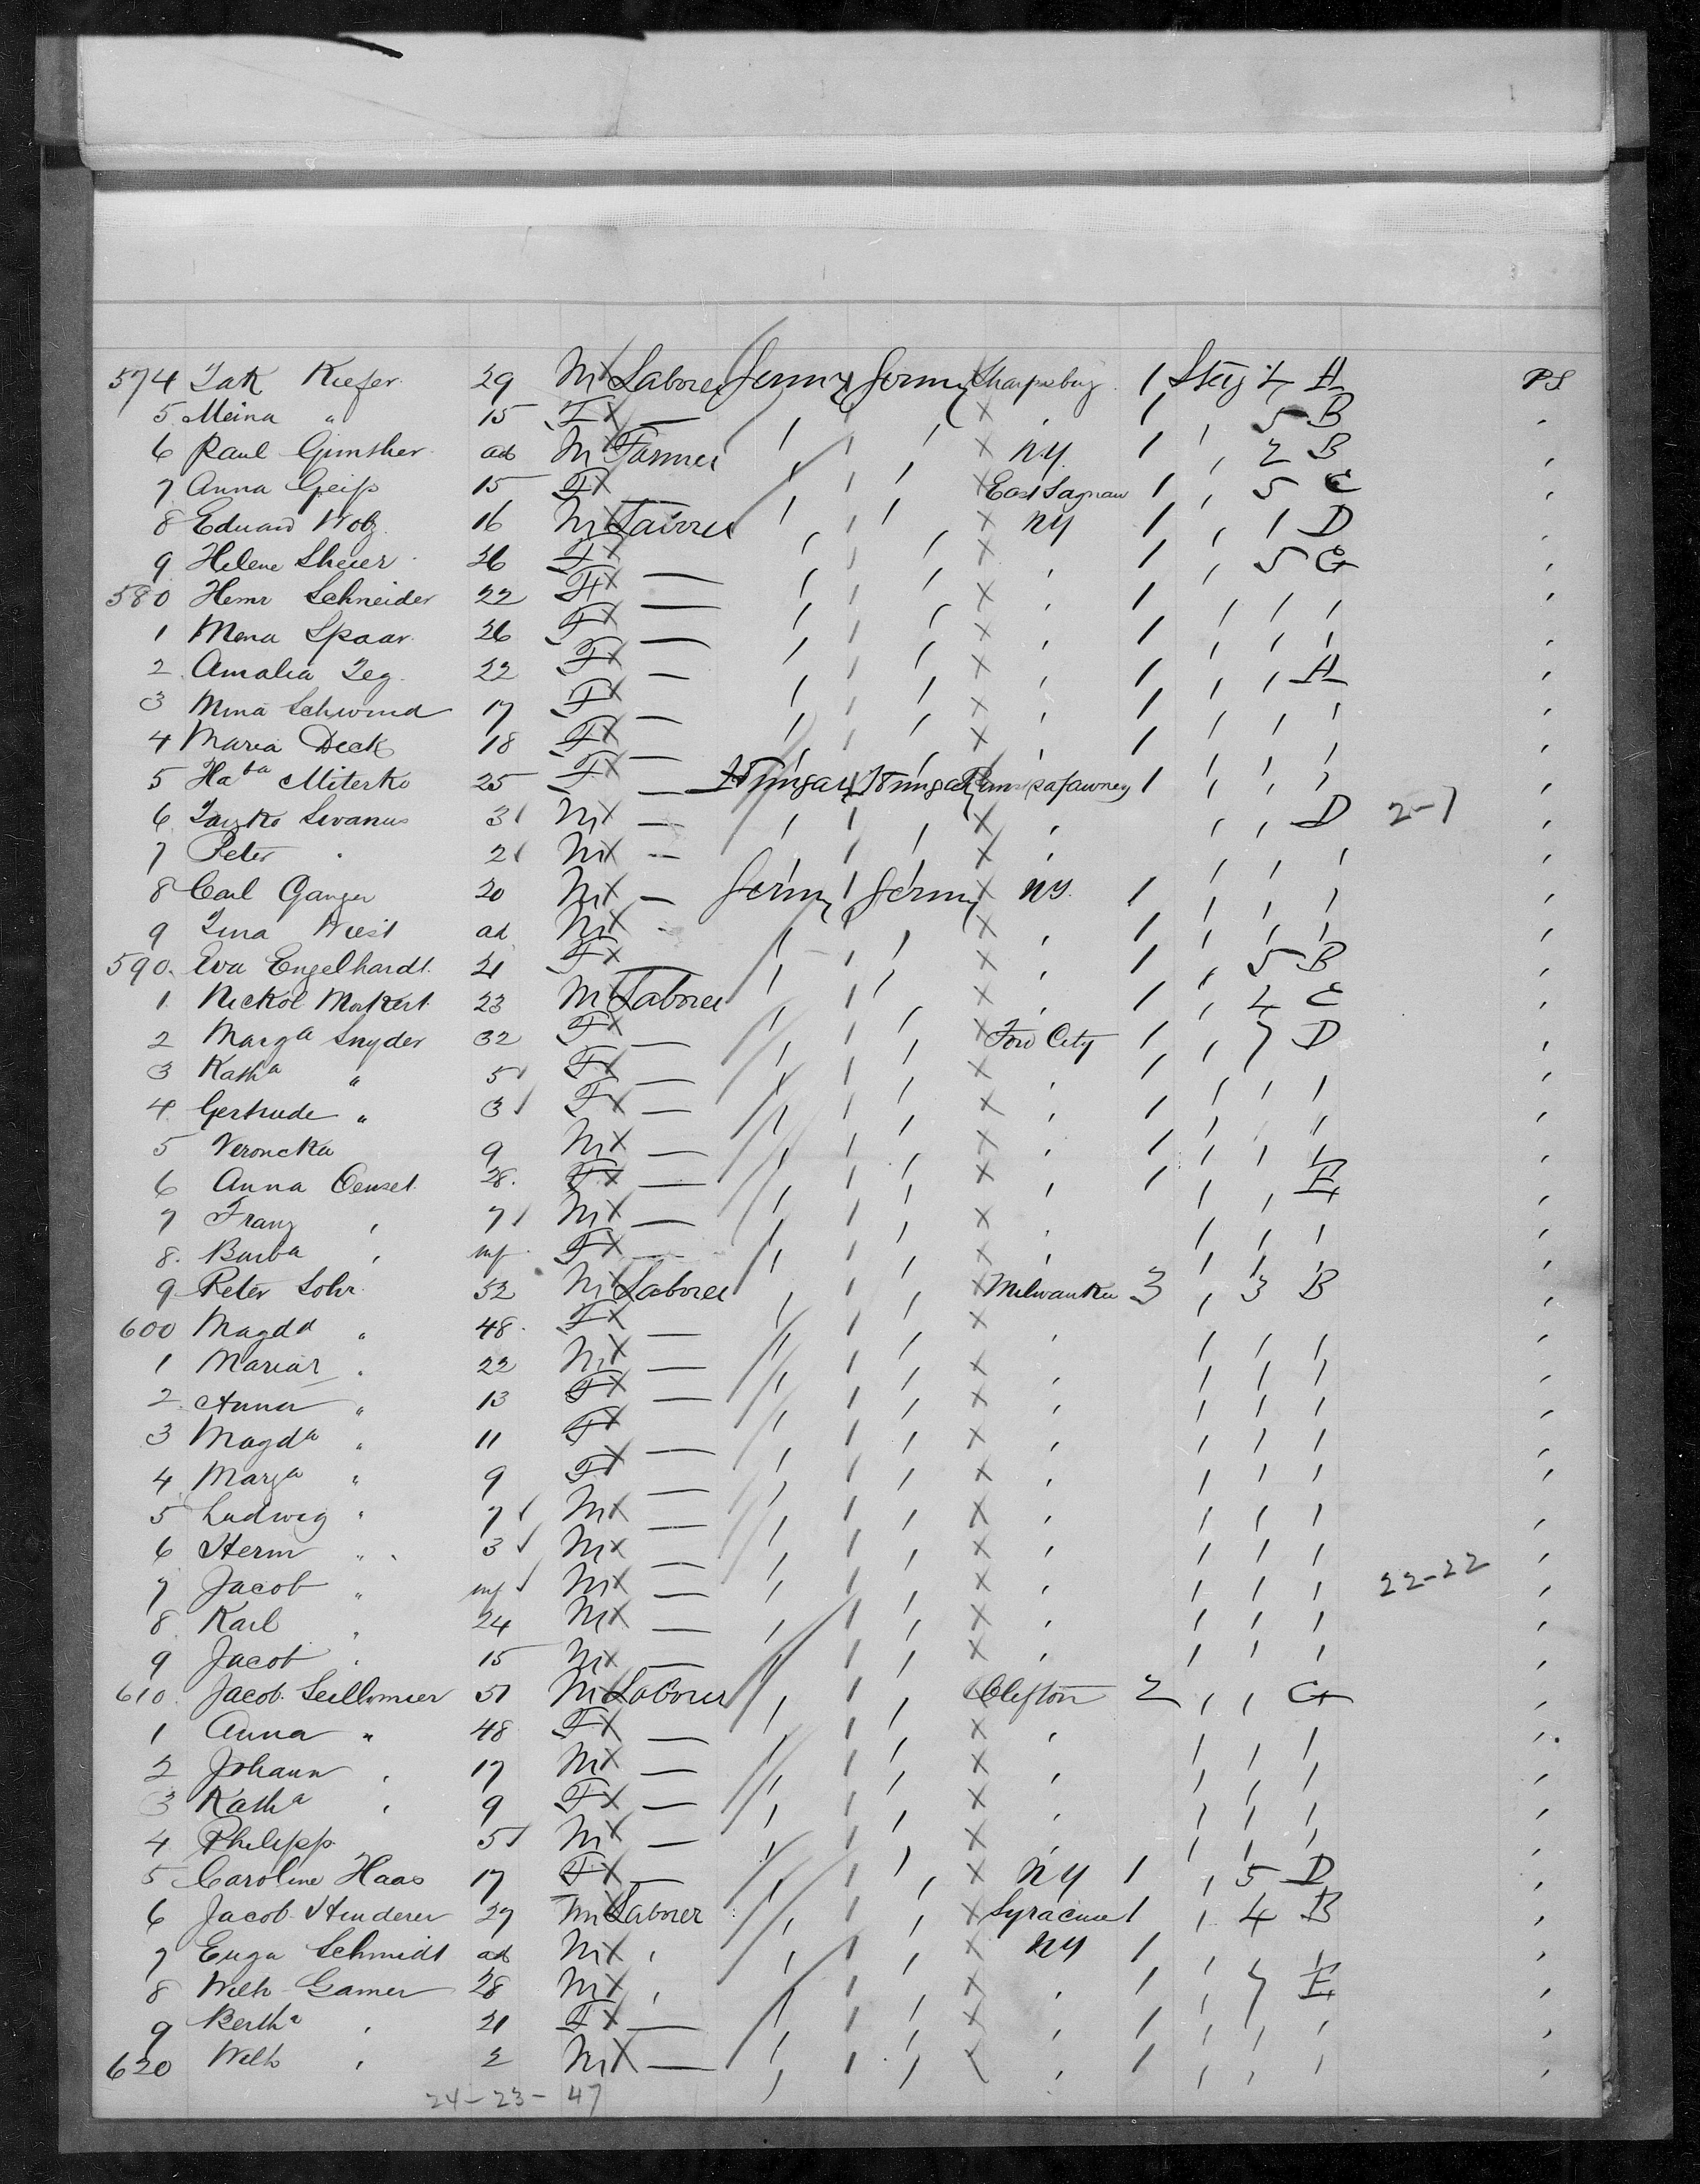 574 Jak Kiefer 29 M Laborer Germy Germy Sharpsburg 1 Steg 4 A PS
5 Meina " 15 F — 1 5 B
6 Paul Gunther ad M Farmer N.Y. 1 2 B
7 Anna Geiss 15 F East Sagnaw 1 5 E
8 Eduard Wolz 16 M NY 1 1 D
9 Helene Sheier 26 F — 1 5 G
580 Henr Schneider 22 F — 1
1 Mena Spaar 26 F — 1
2 Amalia Zeg 22 F — 1 A
3 Mina Schwind 17 F — 1
4 Maria Deck 18 F — 1
5 Ha^ba Miterko 25 F — Hungary Hungary 1
6 3 M — D 2-1
7 Peter " 2 M —
8 Carl Ganger 20 M — Germy Germy NY. 1
9 Wiest ad M 1
590. Eva Engelhardt 21 F — 1 5 B
1 Nickol Markert 23 M Laborer 1 4 E
2 Marg^a Snyder 32 F — Ford City 1 7 D
3 Kath^a " 5 F — 1
4 Gertrude " 3 F — 1
5 Veroncka 9 M — 1
6 Anna 28. F — 1 E
7 Franz " 7 M —
8. Barb^a " inf F —
9 Peter Sohr 52 M Laborer Milwaukee 3 3 B
600 Magd^a " 48 F —
1 Mariar " 22 M —
2 Anna " 13 F —
3 Magd^a " 11 F —
4 Marg^a " 9 F —
5 Ludwig " 7 M —
6 Herm " 3 M —
7 Jacob " inf M — 22-22
8 Karl " 24 M —
9 Jacob " 15 M —
610 Jacob 51 M Laborer Clifton 2 G
1 Anna " 48 F —
2 Johann " 17 M —
3 Kath^a " 9 F —
4 Philipp 5 M —
5 Caroline Haas 17 F — NY 1 5 D
6 Jacob Henderer 27 M Laborer Syracuse 1 4 B
7 Euga Schmidt ad M " NY 1
8 Wilh Gamer 28 M " 1 7 E
9 Berth^a " 21 F — 1
620 Wilh " 2 M — 1
24-23-47